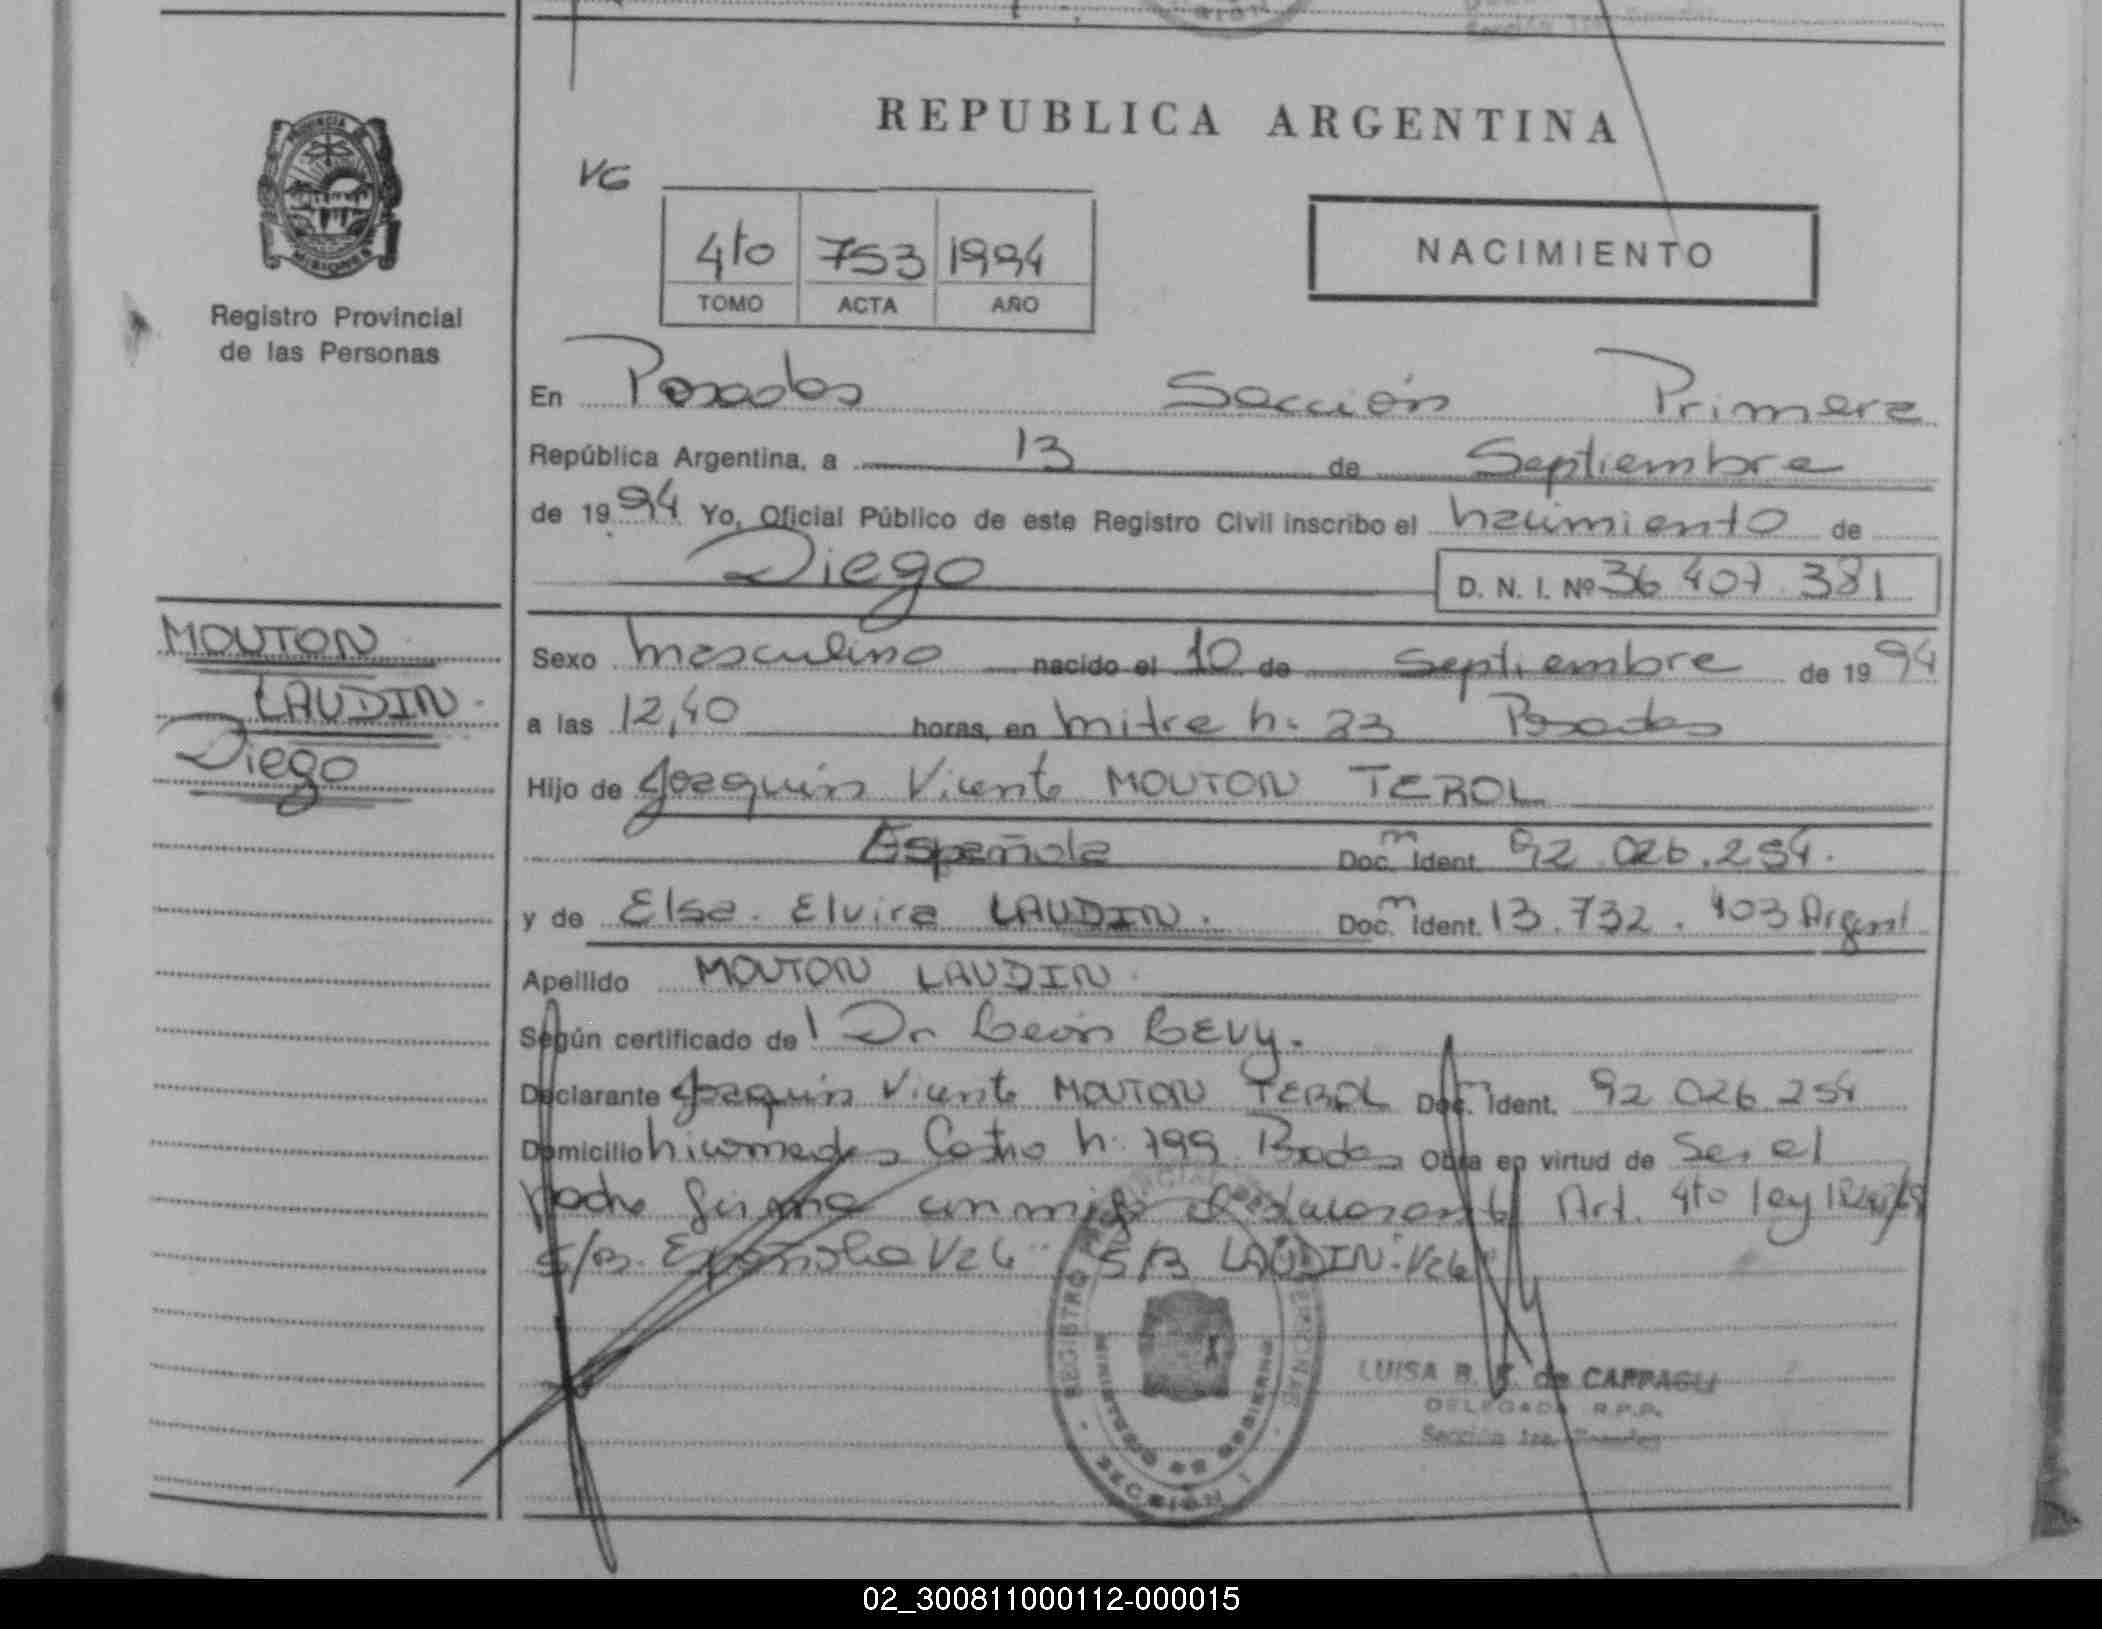 REPUBLICA ARGENTINA
PROVINCIA DE
MISIONES
Registro Provincial
de las Personas
VG
4to 753 1994
TOMO ACTA AÑO
NACIMIENTO
En Posadas Sección Primera
República Argentina, a 13 de Septiembre
de 1994 Yo, Oficial Público de este Registro Civil inscribo el nacimiento de
Diego D. N. I. Nº 36 407 381
MOUTON
LAUDIN
Diego
Sexo masculino nacido el 10 de Septiembre de 1994
a las 12,40 horas, en mitre n. 23 Posadas
Hijo de Joaquín Vicente MOUTON TEROL
Española Doc. m Ident. 92.026.254.
y de Elsa Elvira LAUDIN. Doc. m Ident. 13.732.403 Argent
Apellido MOUTON LAUDIN
Según certificado de Dr León LEVY.
Declarante Joaquín Vicente MOUTON TEROL Doc. m Ident. 92 026 254
Domicilio nicomedes Castro n. 799 Posadas Obra en virtud de Ser el
padre firma conmigo el declarante Art. 4to ley
S/B. Española Vale S/B LAUDIN. Vale
REGISTRO PROVINCIAL DE LAS PERSONAS
MINISTERIO DE GOBIERNO
SECCION 1
LUISA B. de CAPPAGLI
DELEGADA R.P.P.
Sección 1ra. Posadas
02_300811000112-000015